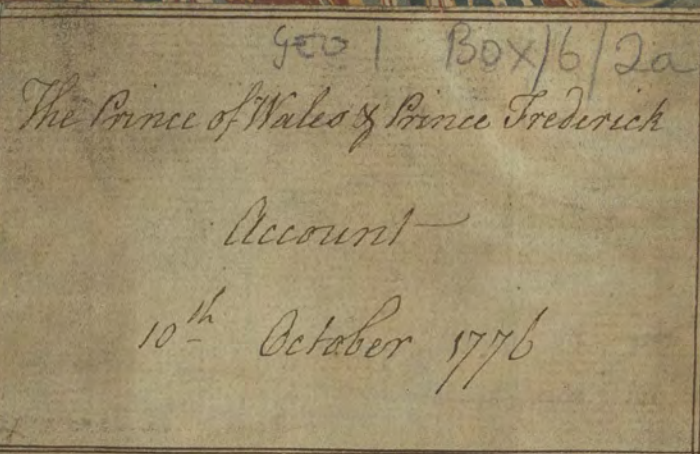 Geo | Box/6/2a
The Prince of Wales & Prince Frederick
Account
10th October 1776